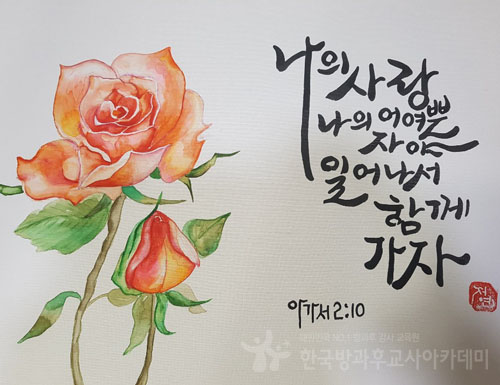 나의 사랑
나의 어여쁜
자야
일어나서
함께
가자
아가서 2:10
대한민국 NO.1 방과후 강사 교육원
한국방과후교사아카데미